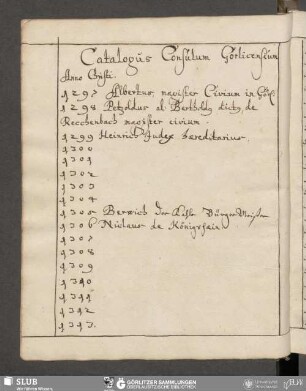 Catalogus Consulum Gorlicensium
Anno Christi.
1297 Albertus magister Civium in
1298 Petzoldus al. Bertholdg dictg de
Reichenbach magister civium.
1299 Heinrich Judex haereditarius.
1300
1301
1302
1303
1304
1305 Berwich der Bürger Meister
1306 Niclaus de Königshain
1307
1308
1309
1310
1311
1312
1313.
SLUB
Wir führen Wissen.
GÖRLITZER SAMMLUNGEN
OBERLAUSITZISCHE BIBLIOTHEK